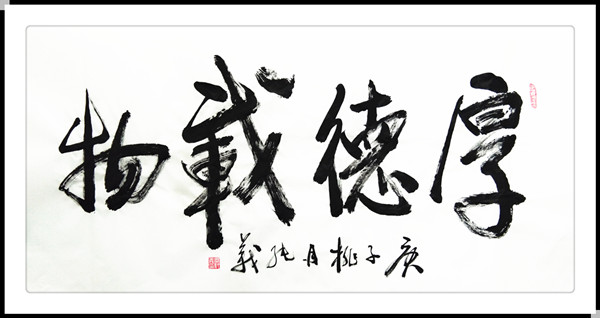 厚德載物
庚子桃月 義